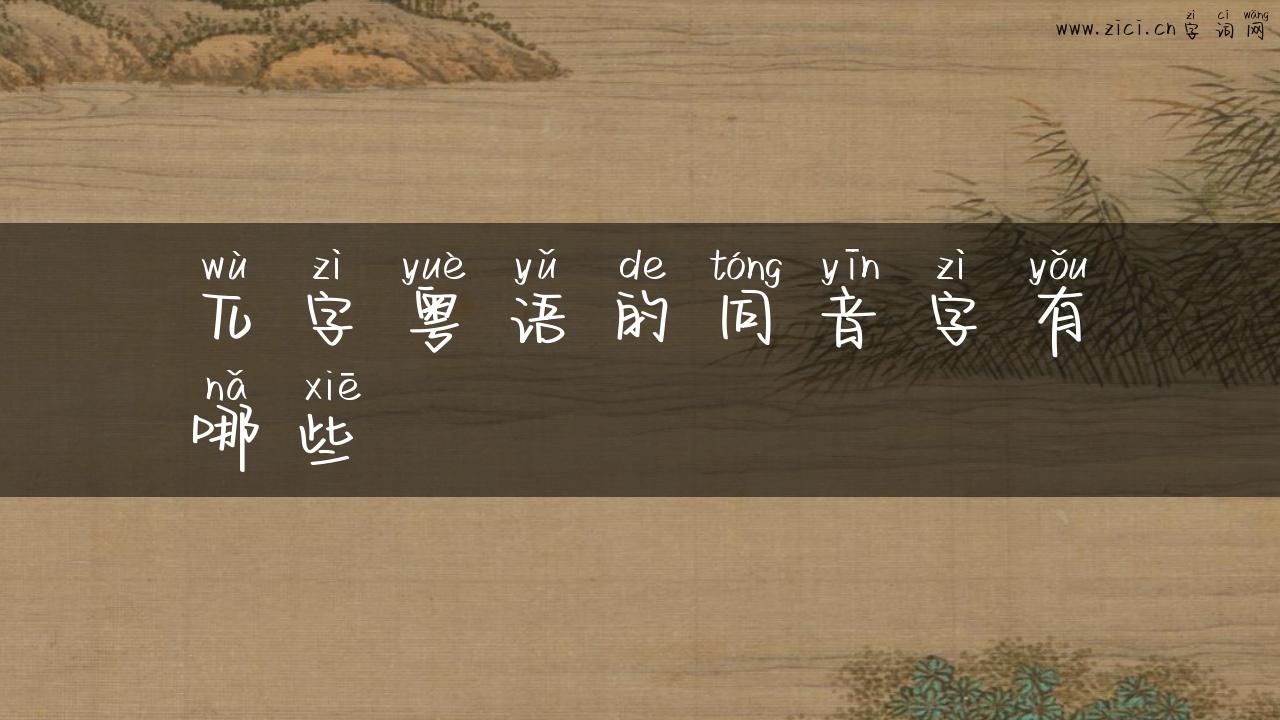 zì cí wǎng
www.zici.cn字词网
wù zì yuè yǔ de tóng yīn zì yǒu
兀字粤语的同音字有
nǎ xiē
哪些